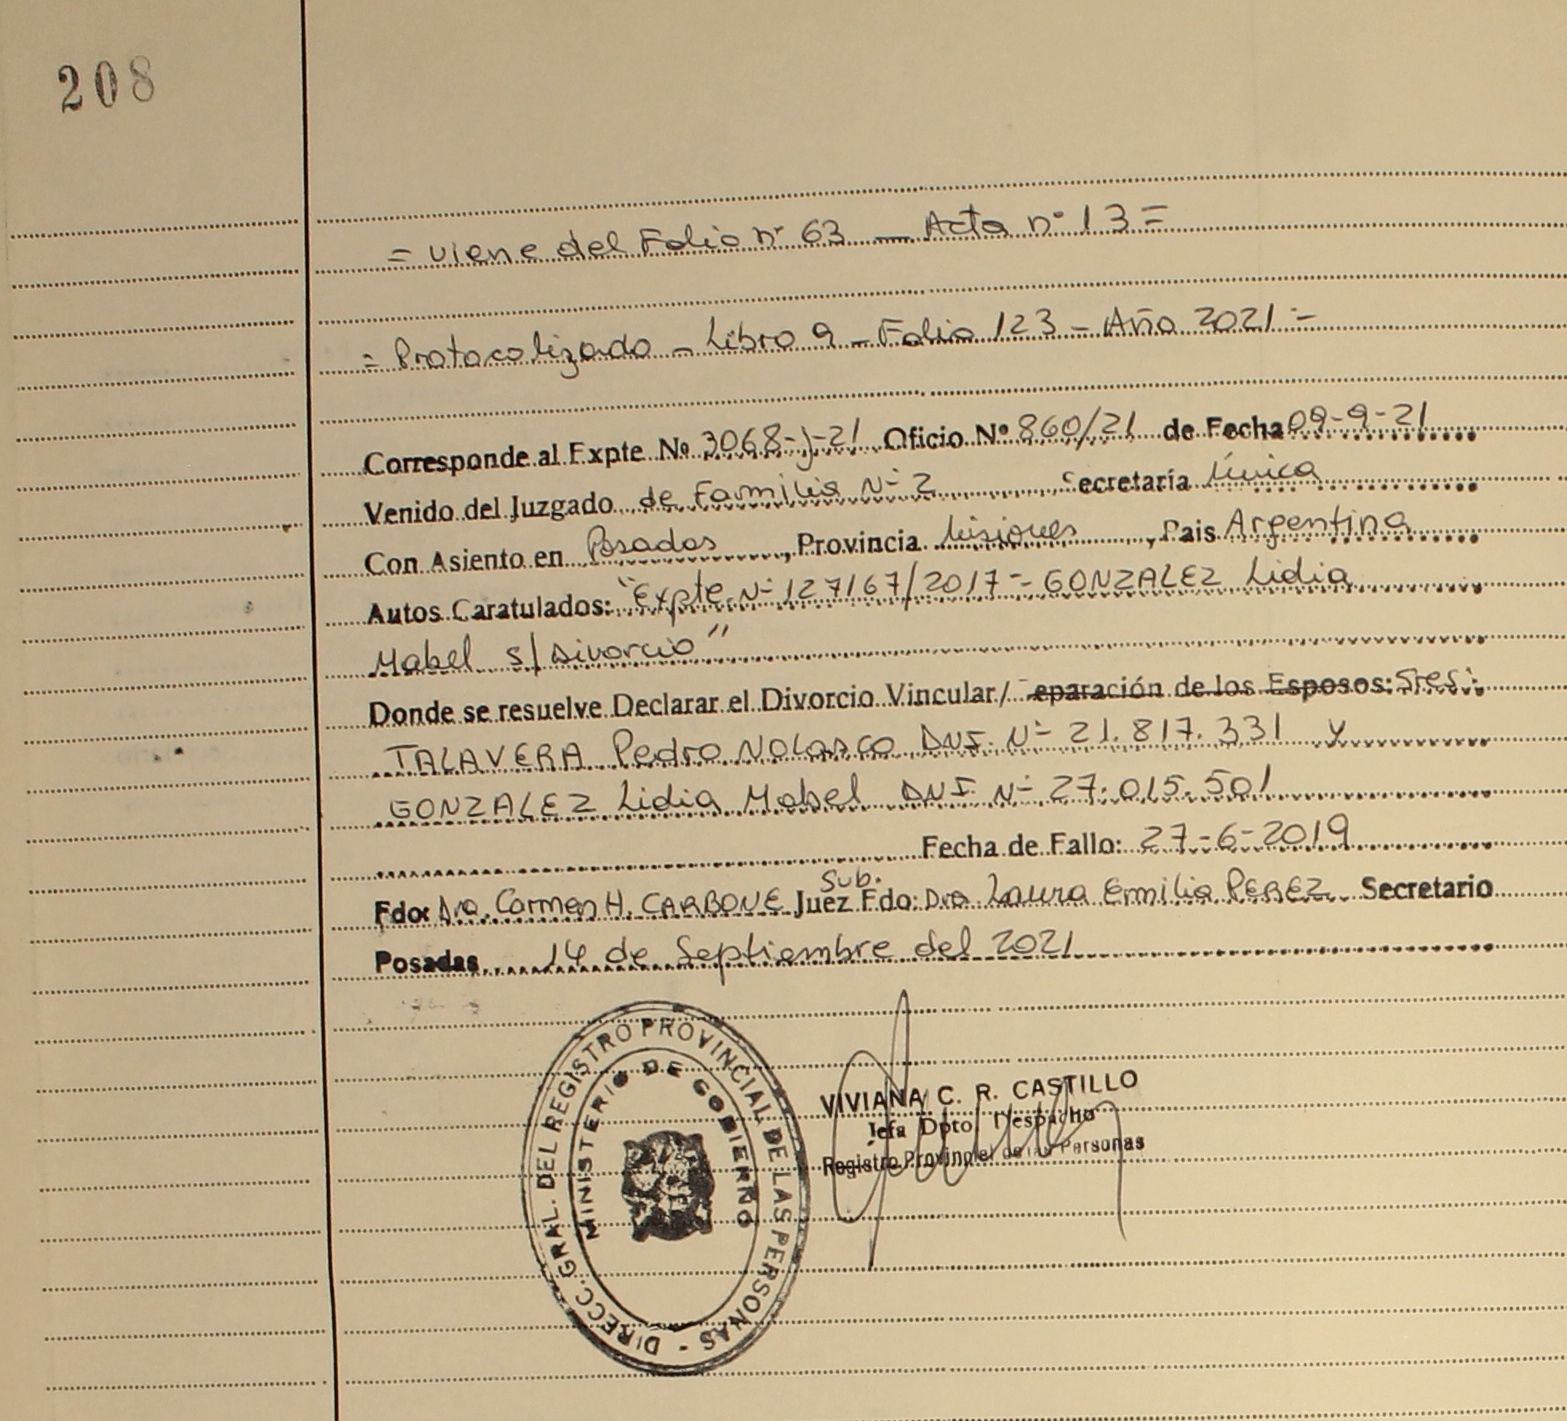 208
= viene del Folio nº 63 — Acta nº 13 =
= Protocolizado - Libro 9 - Folio 123 - Año 2021 =
Corresponde al Expte Nº 3068-J-21 Oficio Nº 860/21 de Fecha 09-9-21
Venido del Juzgado de Familia Nº 2 Secretaría Única
Con Asiento en Posadas, Provincia Misiones, Pais Argentina
Autos Caratulados: "Expte. Nº 127167/2017 - GONZALEZ Lidia
Mabel s/Divorcio"
Donde se resuelve Declarar el Divorcio Vincular/ eparación de los Esposos: Sres:
TALAVERA Pedro NOLASCO DNI. Nº 21.817.331 y
GONZALEZ Lidia Mabel DNI Nº 27.015.501
Fecha de Fallo: 27-6-2019
Sub.
Fdo: Dra. Carmen H. CARBONE Juez Fdo: Dra Laura Emilia PEREZ Secretario
Posadas 14 de Septiembre del 2021
DIRECC. GRAL. DEL REGISTRO PROVINCIAL DE LAS PERSONAS -
MINISTERIO DE GOBIERNO
VIVIANA C. R. CASTILLO
Jefa Dpto. Despacho
Registro Provincial de las Personas